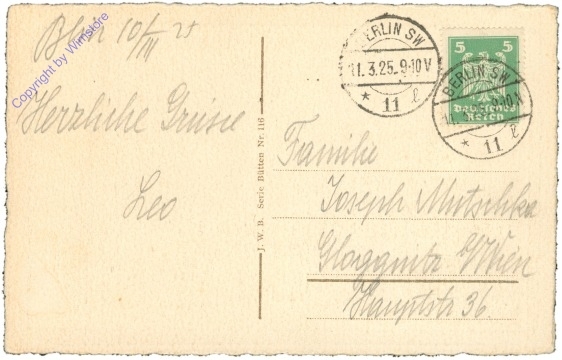 Bln 10/III 25
Herzliche Grüsse
Leo
Copyright by Wimstore
J. W. B. Serie Bütten Nr. 116
BERLIN SW
11.3.25.9-10V
* 11 l
5 5
Deutsches
Reich
BERLIN SW
* 11 l
Familie
Joseph Mutschka
Gloggnitz b/Wien
Hauptstr 36.